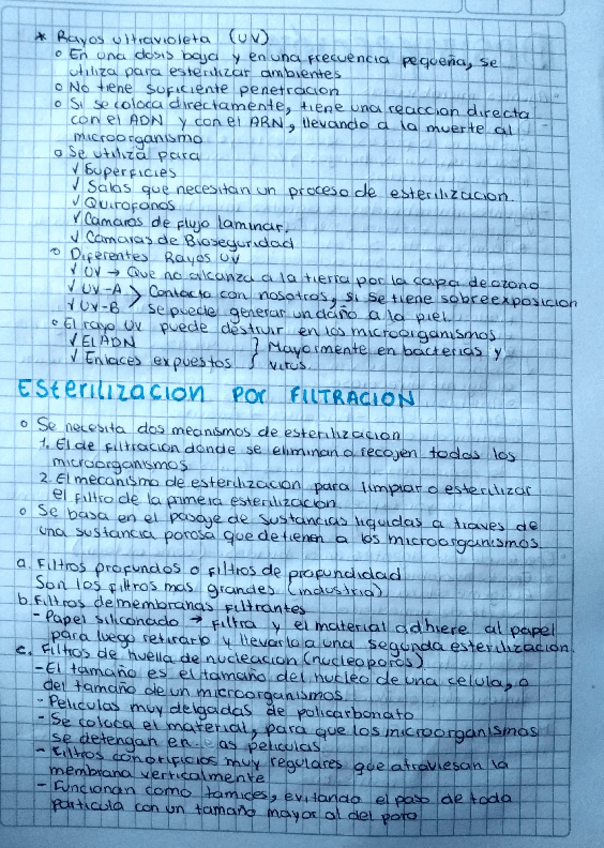 * Rayos ultravioleta (UV)
o En una dosis baja y en una frecuencia pequeña, se
utiliza para esterilizar ambientes
o No tiene suficiente penetración
o Si se coloca directamente, tiene una reaccion directa
con el ADN y con el ARN, llevando a la muerte al
microorganismo
o Se utiliza para
√ Superficies
√ Salas que necesitan un proceso de esterilizacion.
√ Quirofanos
√ Camaras de flujo laminar.
√ Camaras de Bioseguridad
o Diferentes Rayos UV
√ UV → Que no alcanza a la tierra por la capa de ozono
√ UV-A > Contacto con nosotros, si se tiene sobreexposicion
√ UV-B se puede generar un daño a la piel.
o El rayo UV puede destruir en los microorganismos
√ El ADN } Mayormente en bacterias y
√ Enlaces expuestos virus.
Esterilizacion por FILTRACION
o Se necesita dos mecnismos de esterilizacion
1. El de filtracion donde se eliminan o recojen todos los
microorganismos
2. El mecanismo de esterilizacion para limpiar o esterilizar
el filtro de la primera esterilizacion
o Se basa en el pasaje de sustancias liquidas a traves de
una sustancia porosa que detienen a los microorganismos.
a. Filtros profundos o filtros de profundidad
Son los filtros mas grandes (industria)
b. Filtros de membranas filtrantes
- Papel siliconado → filtra y el material adhiere al papel
para luego retirarlo y llevarlo a una segunda esterilizacion.
c. Filtros de huella de nucleación (nucleoporos)
- El tamaño es el tamaño del nucleo de una celula, o
del tamaño de un microorganismos
- Peliculas muy delgadas de policarbonato
- Se coloca el material, para que los microorganismos
se detengan en as peliculas
- Filtros con orificios muy regulares que atraviesan la
membrana verticalmente
- Funcionan como tamices, evitando el paso de toda
particula con un tamaño mayor al del poro